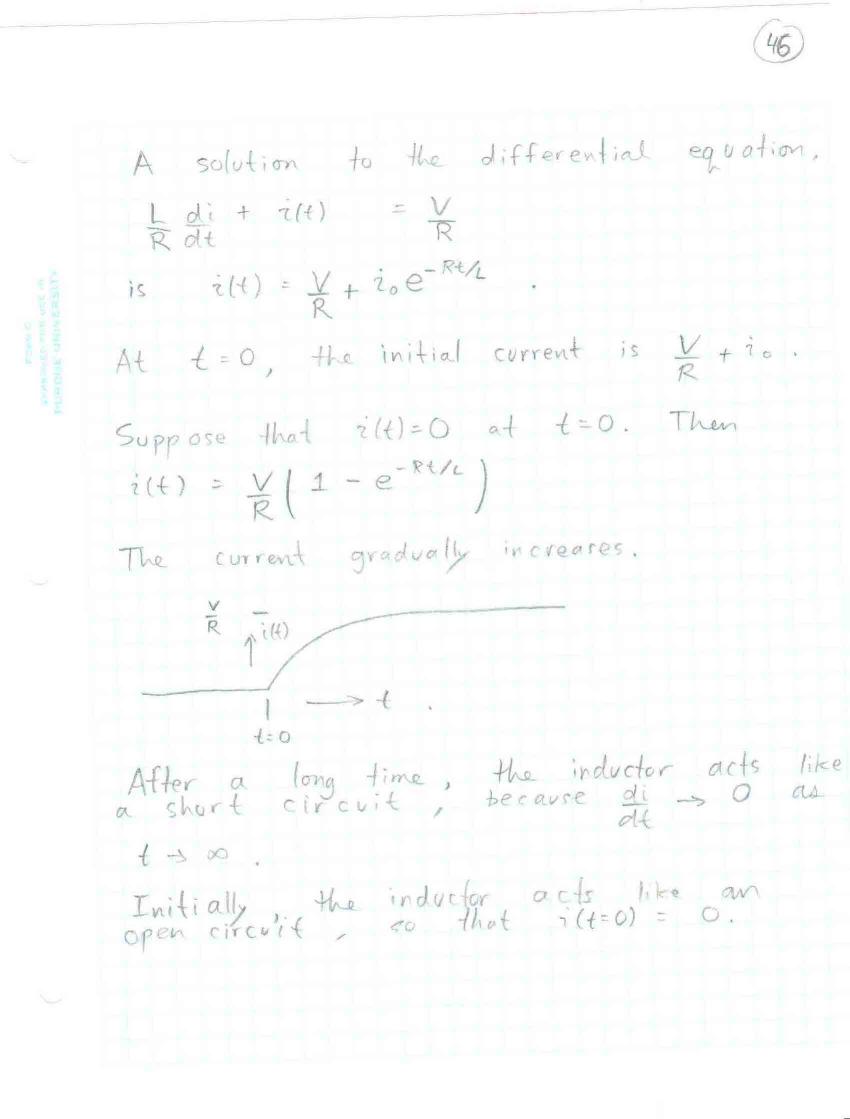 46
A solution to the differential equation,
L/R di/dt + i(t) = V/R
is i(t) = V/R + i₀e^(-Rt/L) .
At t=0, the initial current is V/R + i₀ .
Suppose that i(t)=0 at t=0. Then
i(t) = V/R (1 - e^(-Rt/L))
The current gradually increases.
V/R
↑ i(t)
→ t .
t=0
After a long time, the inductor acts like
a short circuit, because di/dt → 0 as
t → ∞ .
Initially, the inductor acts like an
open circuit, so that i(t=0) = 0.
PURDUE UNIVERSITY